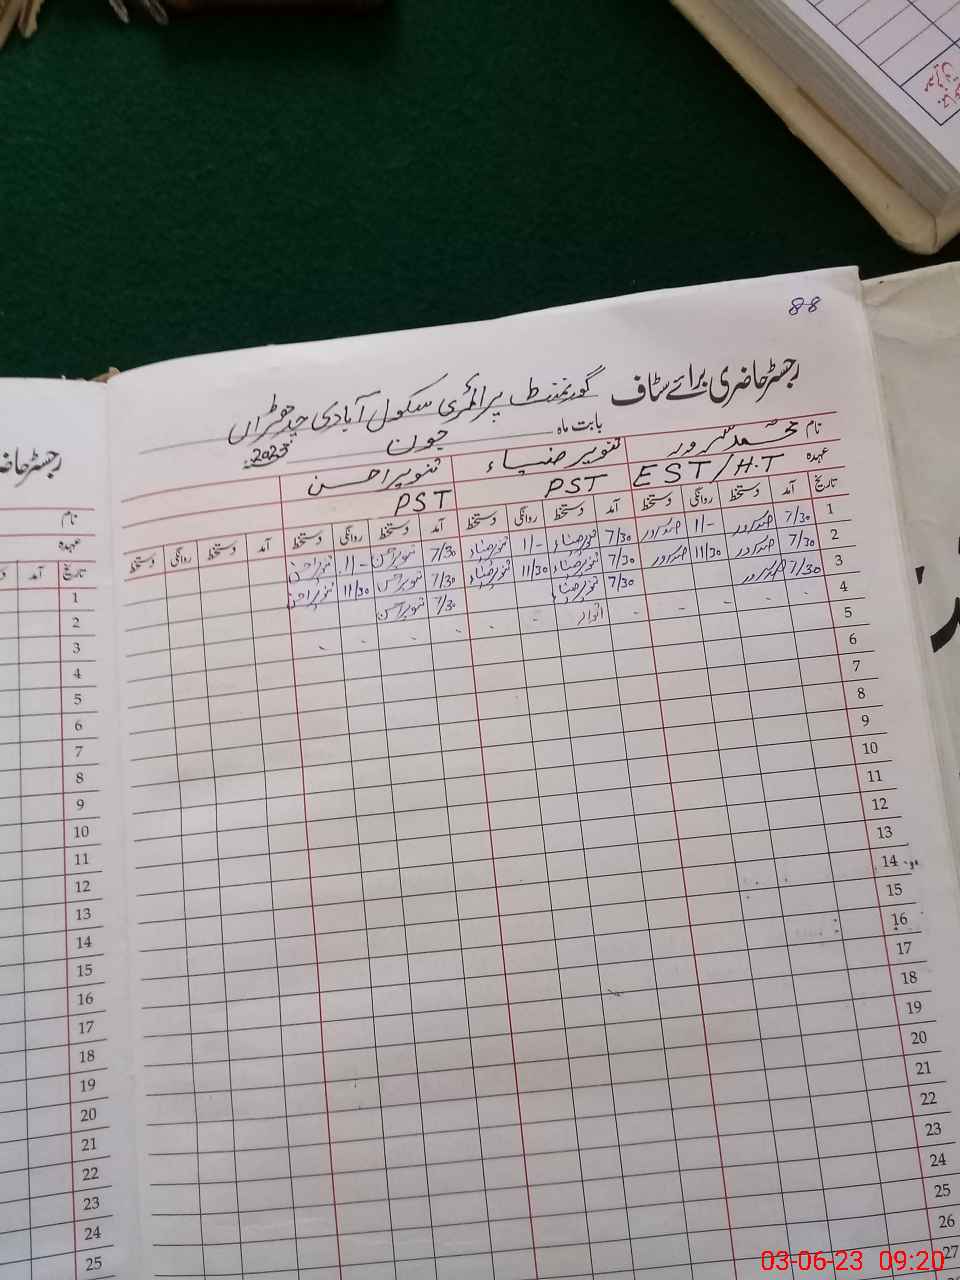 88
رجسٹر حاضری برائے سٹاف گورنمنٹ پرائمری سکول آبادی
بابت ماہ جون 2023
نام محمد سرور تنویر ضیاء تنویر احسن
عہدہ EST/H.T PST PST
تاریخ آمد دستخط روانگی دستخط آمد دستخط روانگی دستخط آمد دستخط روانگی دستخط آمد دستخط روانگی دستخط
1 7/30 11/- 7/30 تنویر ضیاء 11/- تنویر ضیاء 7/30 تنویر احسن 11/- تنویر احسن
2 7/30 11/30 7/30 تنویر ضیاء 11/30 تنویر ضیاء 7/30 تنویر احسن 11/30 تنویر احسن
3 7/30 7/30 تنویر ضیاء 7/30 تنویر احسن
4 اتوار
5
6
7
8
9
10
11
12
13
14
15
16
17
18
19
20
21
22
23
24
25
26
27
نام
عہدہ
تاریخ آمد
1
2
3
4
5
6
7
8
9
10
11
12
13
14
15
16
17
18
19
20
21
22
23
24
25
03-06-23 09:20